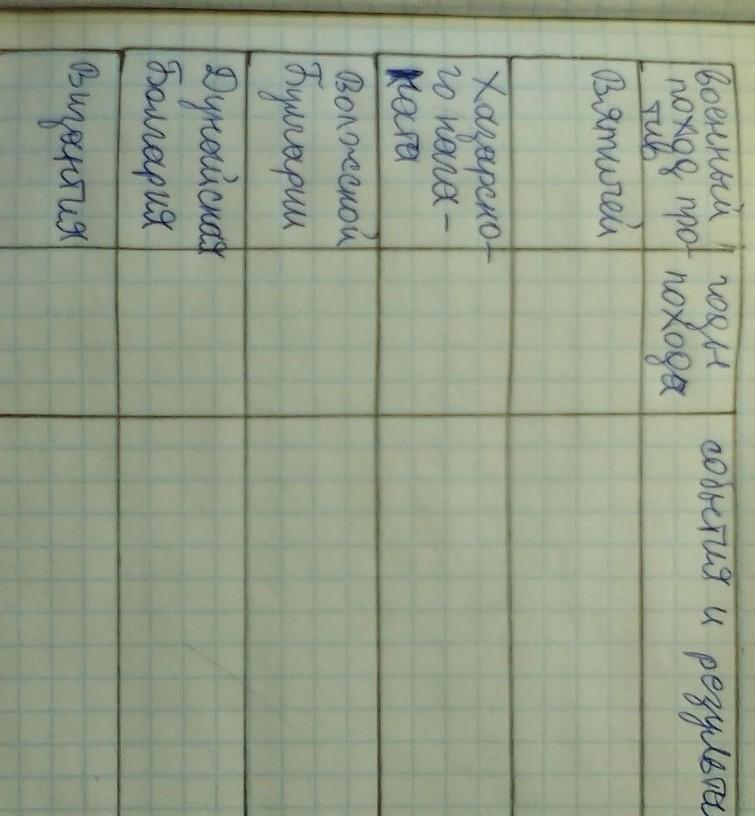 военный
поход про-
тив
годы
похода
события и результа
Вятичей
Хазарско-
го кага-
ната
Волжской
Булгарии
Дунайская
Болгария
Византия